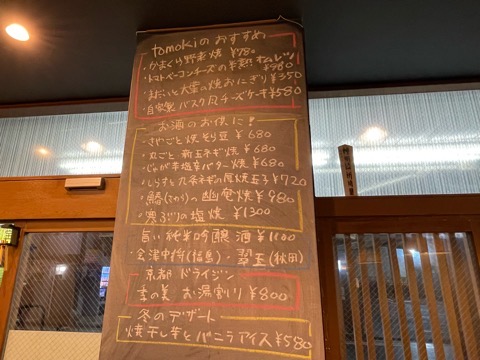 tomokiのおすすめ
・かまくら野菜焼 ¥780
・トマトベーコンチーズの半熟!!オムレツ ¥980
・まだいと大葉の焼おにぎり ¥350
・自家製 バスク風チーズケーキ ¥580
お酒のお供に!
・さやごと焼そら豆 ¥680
・丸ごと 新玉ネギ焼 ¥680
・じゃが辛塩辛バター焼 ¥680
・しらすと九条ネギの厚焼玉子 ¥720
・鰆(さわら)の幽庵焼 ¥980
・寒ぶりの塩焼 ¥1300
旨い純米吟醸酒 ¥1100
会津中将(福島)・翠玉(秋田)
京都 ドライジン
季の美 お湯割り ¥800
冬のデザート
焼干し芋とバニラアイス ¥580